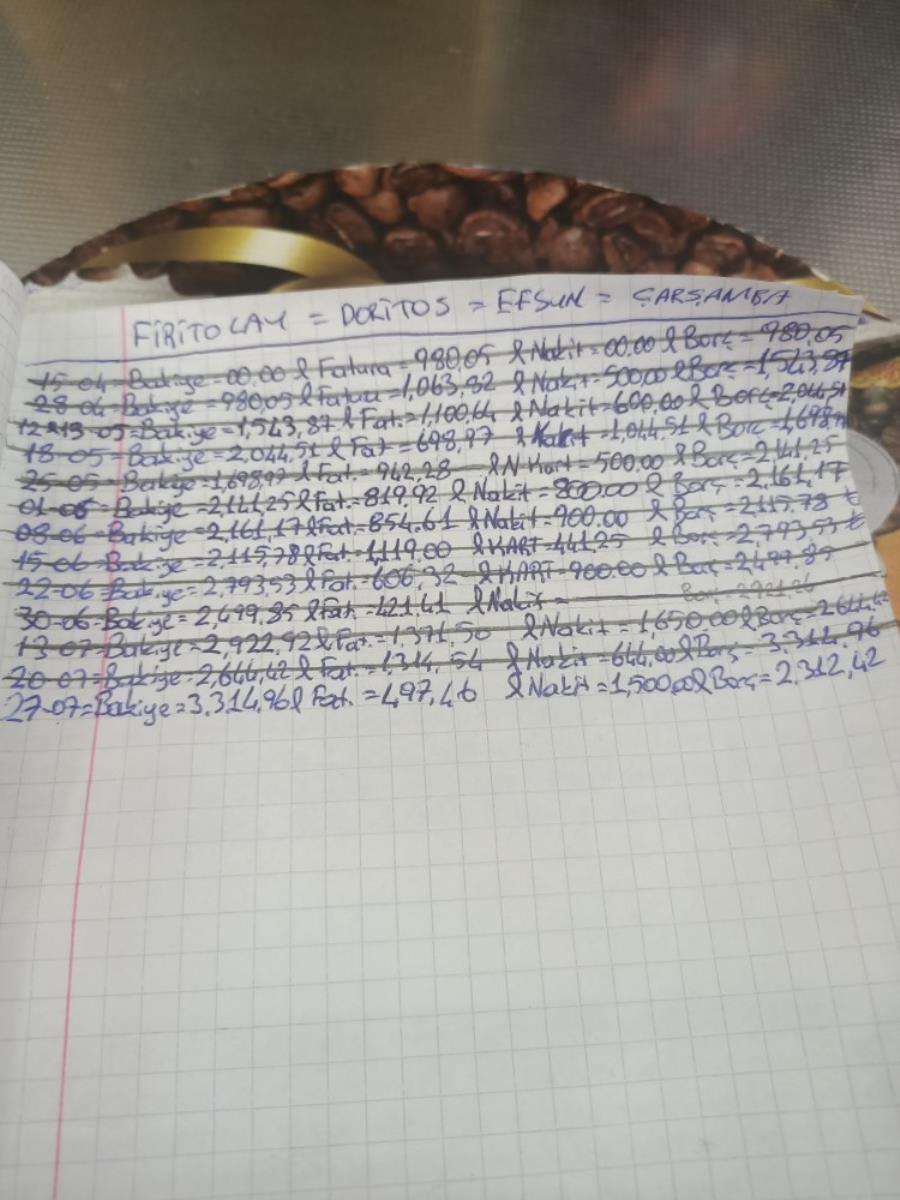 FİRİTOLAY = DORİTOS = EFSUN = ÇARŞAMBA
15-04=Bakiye=00.00 l Fatura=980,05 l Nakit=00.00 l Borç=980,05
28-04=Bakiye=980,05 l Fatura=1,063,82 l Nakit=500,00 l Borç=1,543,87
12-13-05=Bakiye=1,543,87 l Fat.=1,100,64 l Nakit=600,00 l Borç=2,044,51
18-05=Bakiye=2,044,51 l Fat=698,97 l Nakit=1,044,51 l Borç=1,698,97
25-05=Bakiye=1,698,97 l Fat.=942,28 l N Kart=500.00 l Borç=2,141,25
01-06=Bakiye=2,141,25 l Fat.=819,92 l Nakit=800.00 l Borç=2,161,17
08-06=Bakiye=2,161,17 l Fat.=854,61 l Nakit=900.00 l Borç=2,115,78 ₺
15-06=Bakiye=2,115,78 l Fat.=1,119,00 l KART=441,25 l Borç=2,793,53 ₺
22-06=Bakiye=2,793,53 l Fat.=606,32 l KART=900.00 l Borç=2,499,85
30-06=Bakiye=2,499,85 l Fat.=421,41 l Nakit=
13-07=Bakiye=2,922,92 l Fat.=1,371,50 l Nakit=1,650,00 l Borç=2,644,42
20-07=Bakiye=2,644,42 l Fat.=1,314,54 l Nakit=644,00 l Borç=3.314,96
27-07=Bakiye=3.314,96 l Fat.=497,46 l Nakit=1,500,00 l Borç=2.312,42